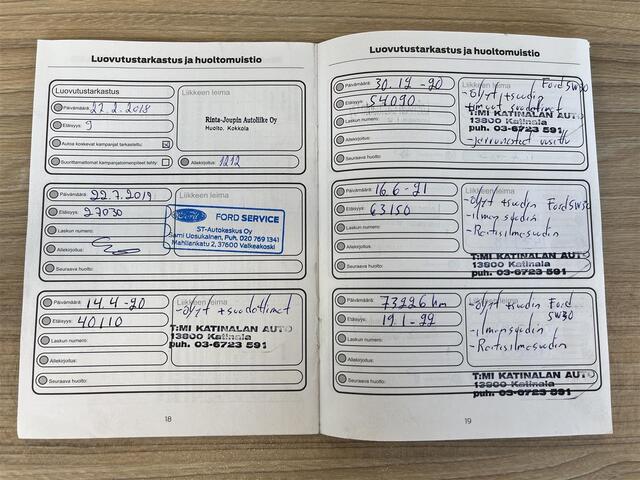 Luovutustarkastus ja huoltomuistio
Luovutustarkastus
Päivämäärä: 27.2.2018
Etäisyys: 9
Autoa koskevat kampanjat tarkastettu:
Suorittamattomat kampanjatoimenpiteet tehty:
Liikkeen leima
Rinta-Joupin Autoliike Oy
Huolto. Kokkola
Allekirjoitus: 1212
Päivämäärä: 22.7.2019
Etäisyys: 27030
Laskun numero:
Allekirjoitus:
Seuraava huolto:
Liikkeen leima
Ford FORD SERVICE
ST-Autokeskus Oy
Sami Uosukainen, Puh. 020 769 1341
Mahliankatu 2, 37600 Valkeakoski
Päivämäärä: 14.4-20
Etäisyys: 40110
Laskun numero:
Allekirjoitus:
Seuraava huolto:
Liikkeen leima
-öljyt +suodattimet
T:MI KATINALAN AUTO
13800 Katinala
puh. 03-6723 591
18
Luovutustarkastus ja huoltomuistio
Päivämäärä: 30.12-20
Etäisyys: 54090
Laskun numero:
Allekirjoitus:
Seuraava huolto:
Liikkeen leima
Ford 5W30
-öljyt +suodin
T:MI KATINALAN AUTO
13800 Katinala
puh. 03-6723 591
Päivämäärä: 16.6-21
Etäisyys: 63150
Laskun numero:
Allekirjoitus:
Seuraava huolto:
Liikkeen leima
-öljyt +suodin Ford 5W30
-ilmansuodin
-Raitisilmasuodin
T:MI KATINALAN AUTO
13800 Katinala
puh. 03-6723 591
Päivämäärä: 73226 km
Etäisyys: 19.1-22
Laskun numero:
Allekirjoitus:
Seuraava huolto:
Liikkeen leima
-öljyt +suodin Ford
5W30
-ilmansuodin
-Raitisilmasuodin
T:MI KATINALAN AUTO
13800 Katinala
puh. 03-6723 591
19